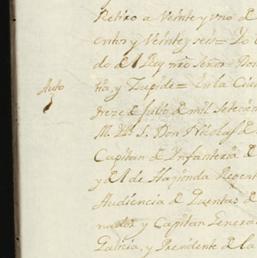 Retiro a Veinte y uno de
entos y Veinte y seis = Yo
do de el Rey nro Señor Don
Auto
tta, y Zupide = En la Ciu
treze de Julio de mil setecie
M. Ille S. Don Nicolas
Capitan de Infanteria de
y de el de Hazienda Regent
Audiencia de Quentas
nador y Capitan General
Galicia, y Presidente de la